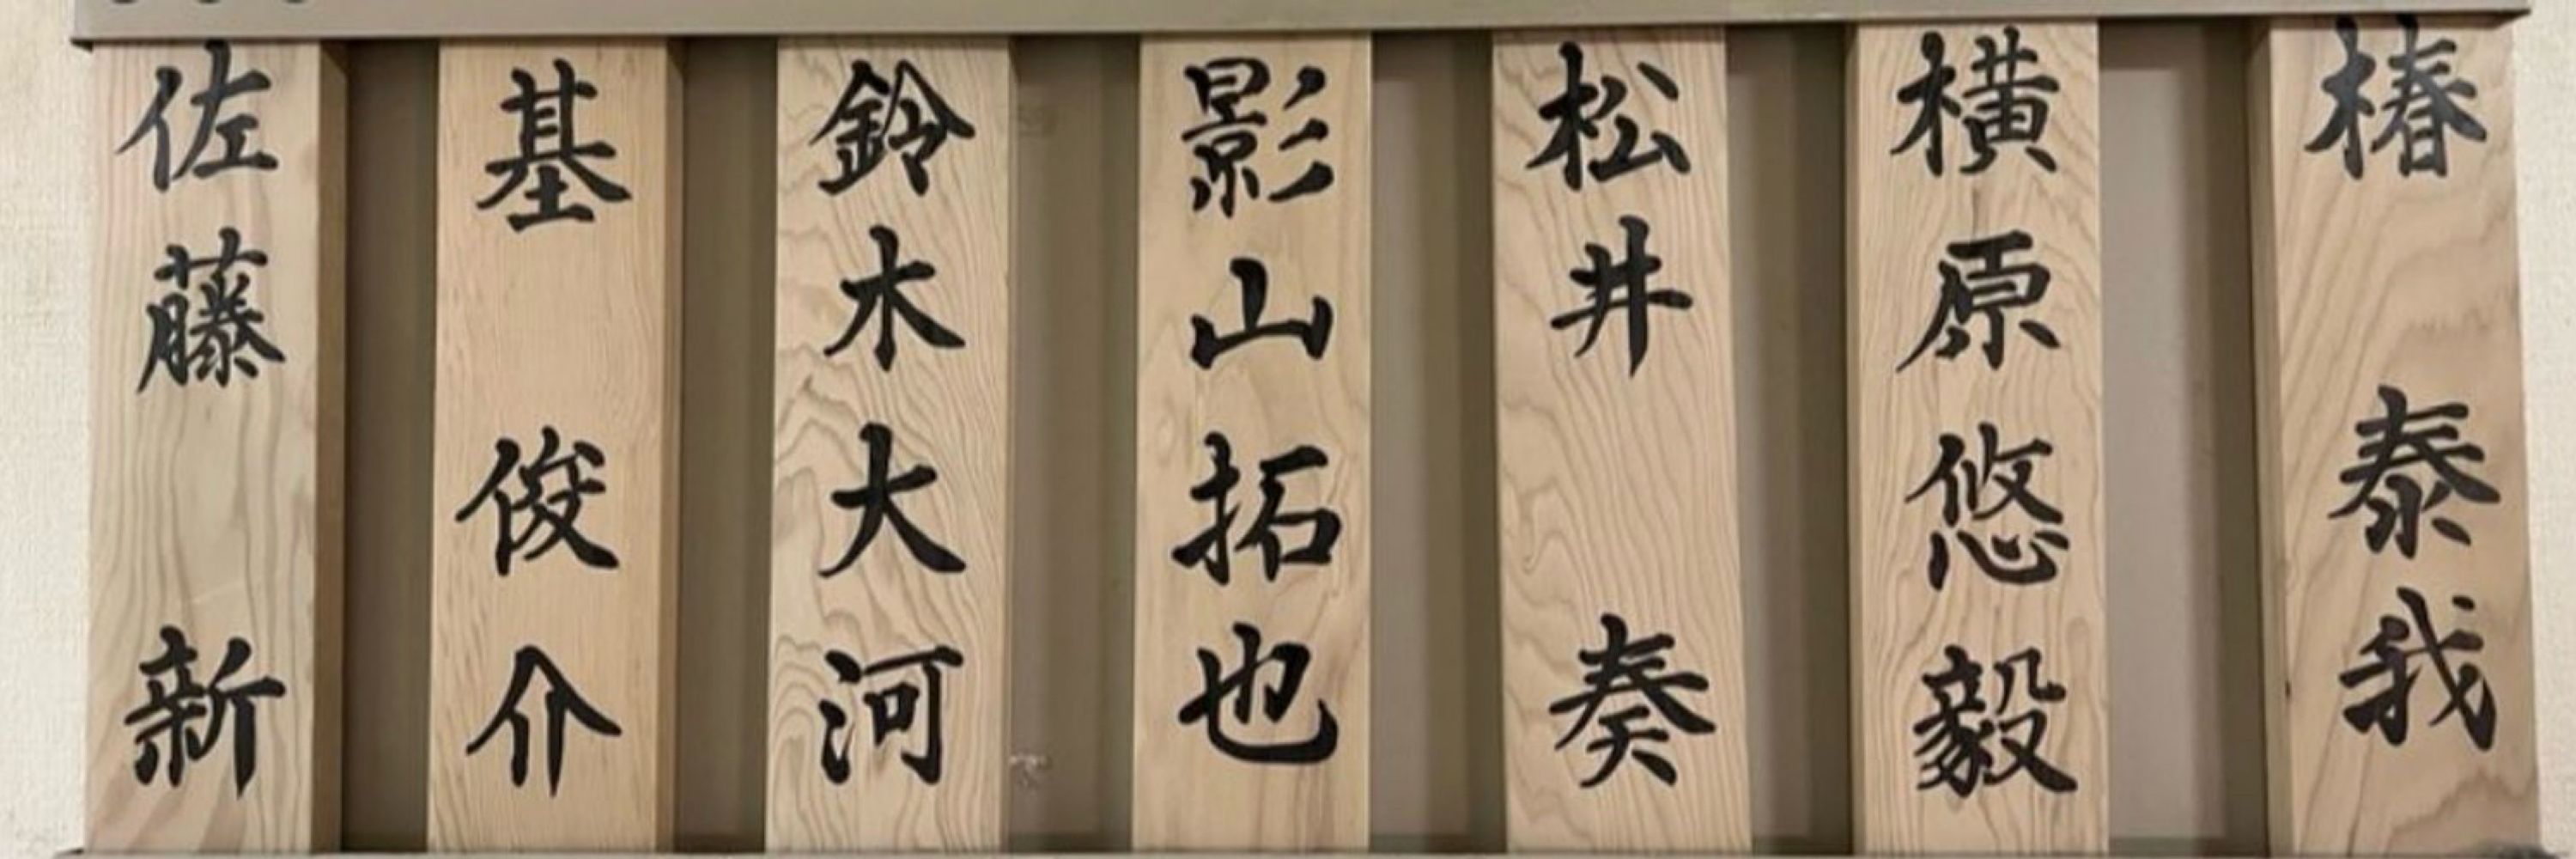 椿 泰我
横原悠毅
松井 奏
影山拓也
鈴木大河
基 俊介
佐藤 新